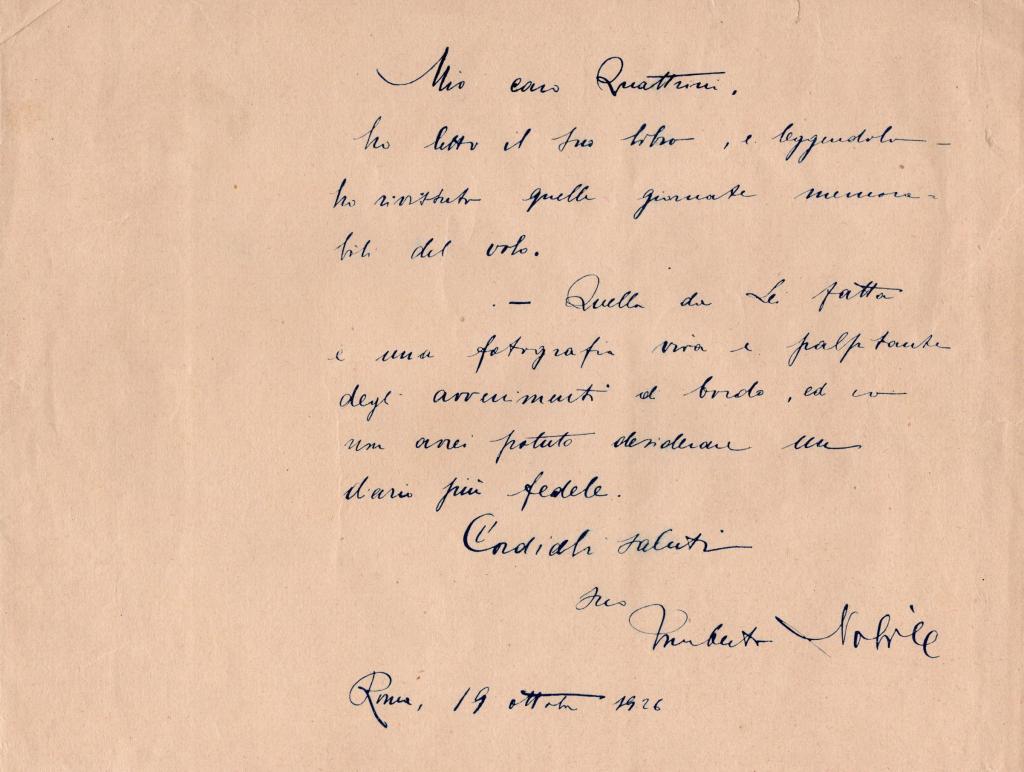 Mio caro Quattrini.
ho letto il suo libro, e leggendolo -
ho rivissuto quelle giornate memora-
bili del volo.
. — Quella da Lei fatta
è una fotografia viva e palpitante
degli avvenimenti di bordo, ed io
non avrei potuto desiderare un
diario più fedele.
Cordiali saluti
suo
Umberto Nobile
Roma, 19 ottobre 1926